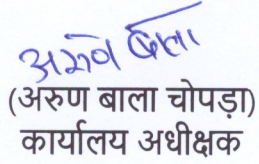 अरुण बाला
(अरुण बाला चोपड़ा)
कार्यालय अधीक्षक